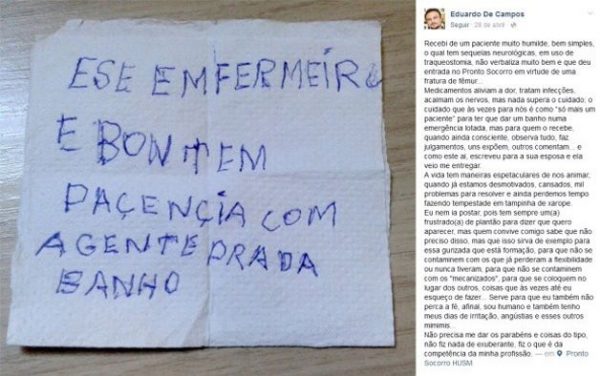 ESE EMFERMEIRO
E BON TEM
PACENÇIA COM
AGENTE PRA DA
BANHO
Eduardo De Campos
Seguir · 28 de abril ·
Recebi de um paciente muito humilde, bem simples,
o qual tem sequelas neurológicas, em uso de
traqueostomia, não verbaliza muito bem e que deu
entrada no Pronto Socorro em virtude de uma
fratura de fêmur...
Medicamentos aliviam a dor, tratam infecções,
acalmam os nervos, mas nada supera o cuidado; o
cuidado que às vezes para nós é como "só mais um
paciente" para ter que dar um banho numa
emergência lotada, mas para quem o recebe,
quando ainda consciente, observa tudo, faz
julgamentos, uns expõem, outros comentam... e
como este aí, escreveu para a sua esposa e ela
veio me entregar.
A vida tem maneiras espetaculares de nos animar,
quando já estamos desmotivados, cansados, mil
problemas para resolver e ainda perdemos tempo
fazendo tempestade em tampinha de xarope.
Eu nem ia postar, pois tem sempre um(a)
frustrado(a) de plantão para dizer que quero
aparecer, mas quem convive comigo sabe que não
preciso disso, mas que isso sirva de exemplo para
essa gurizada que está formação, para que não se
contaminem com os que já perderam a flexibilidade
ou nunca tiveram, para que não se contaminem
com os "mecanizados", para que se coloquem no
lugar dos outros, coisas que às vezes até eu
esqueço de fazer... Serve para que eu também não
perca a fé, afinal, sou humano e também tenho
meus dias de irritação, angústias e esses outros
mimimis.
Não precisa me dar os parabéns e coisas do tipo,
não fiz nada de exuberante, fiz o que é da
competência da minha profissão. — em Pronto
Socorro HUSM